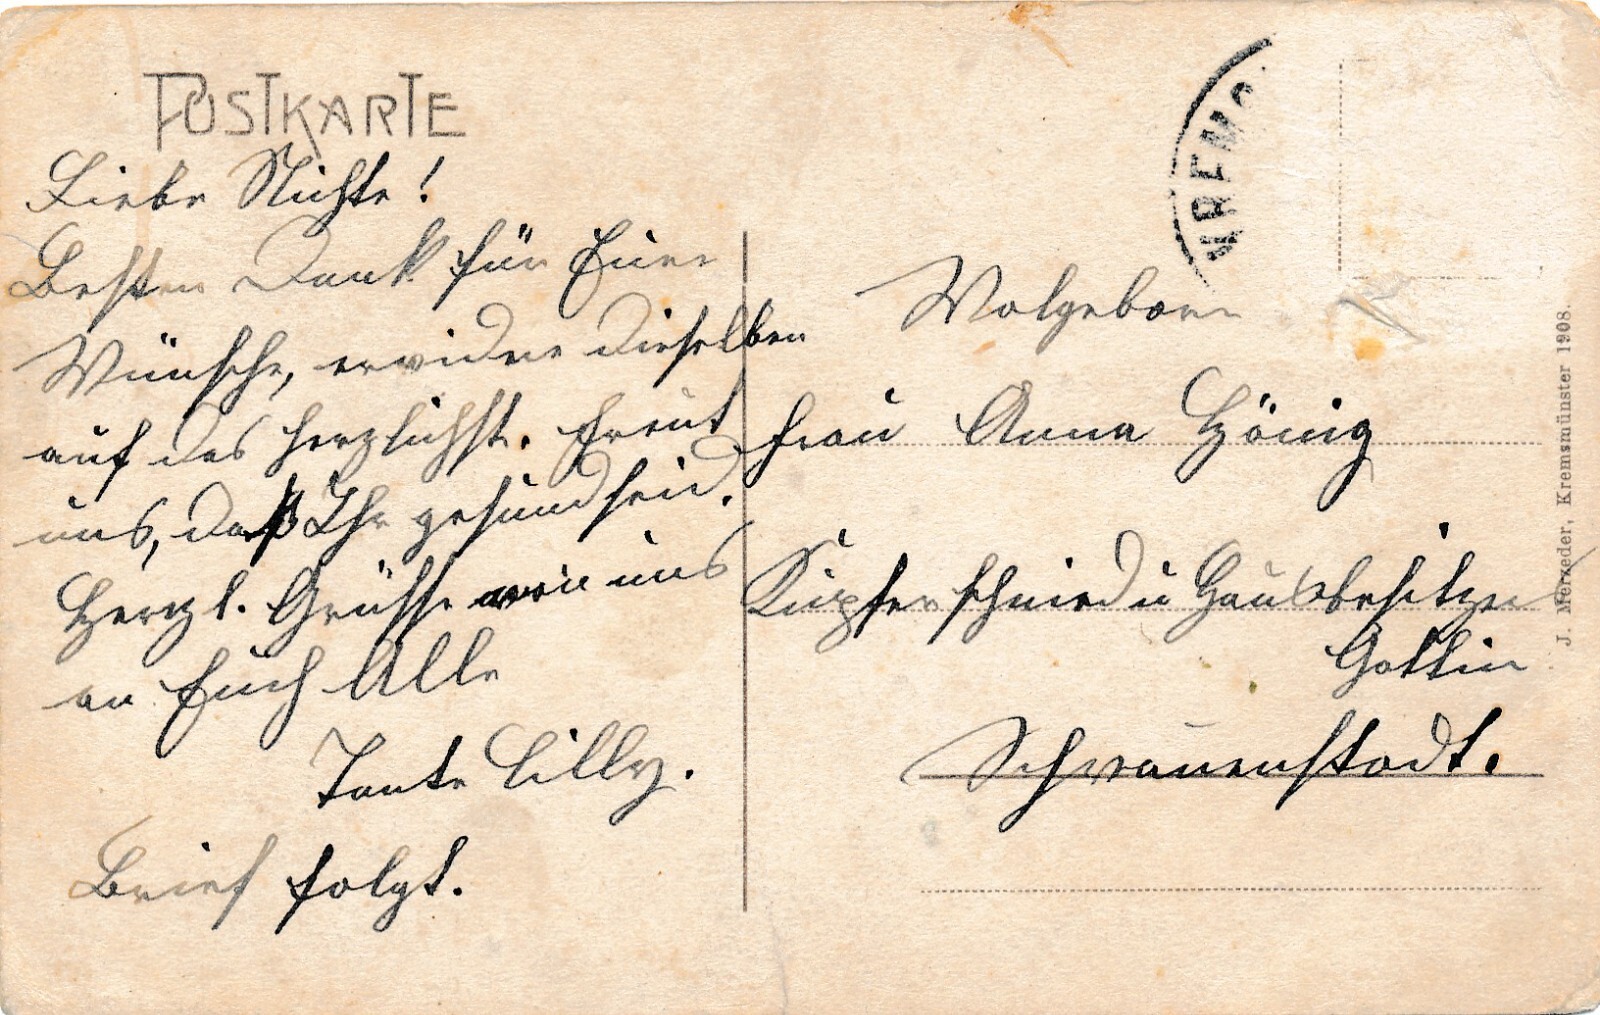 POSTKARTE
Liebe Nichte!
Besten Dank für Eure
Wünsche, erwidre dieselben
auf das herzlichst. Freut
uns, daß Ihr gesund seid.
Herzl. Grüsse von uns
an Euch Alle
Tante Cilly.
Brief folgt.
KREMS
Wolgeborn
Frau Anna Hönig
Kupferschmied u Hausbesitzers
Gattin
Schwanenstadt.
J. Merzeder, Kremsmünster 1908.